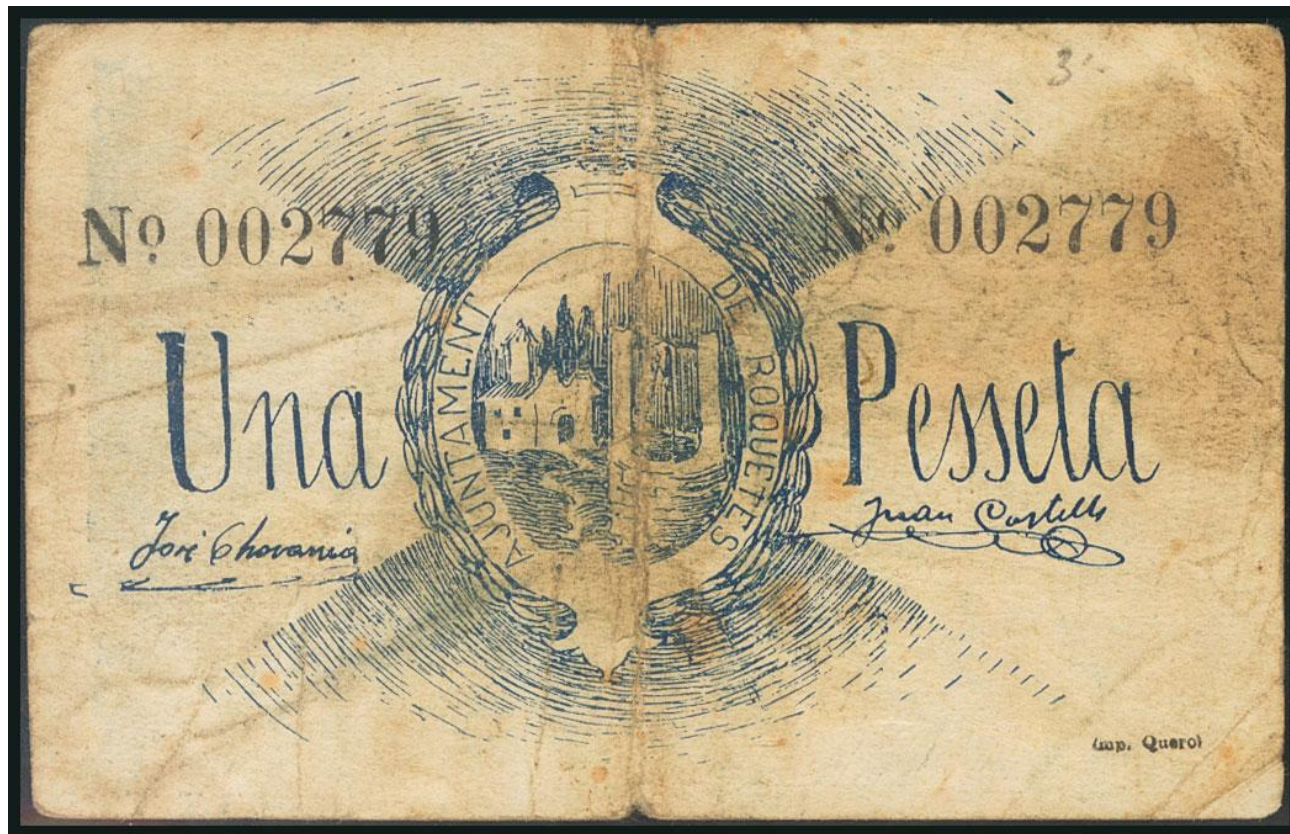 3-
Nº 002779 Nº 002779
AJUNTAMENT DE ROQUETES
Una Pesseta
José Chavarria Juan Castells
(Imp. Quero)